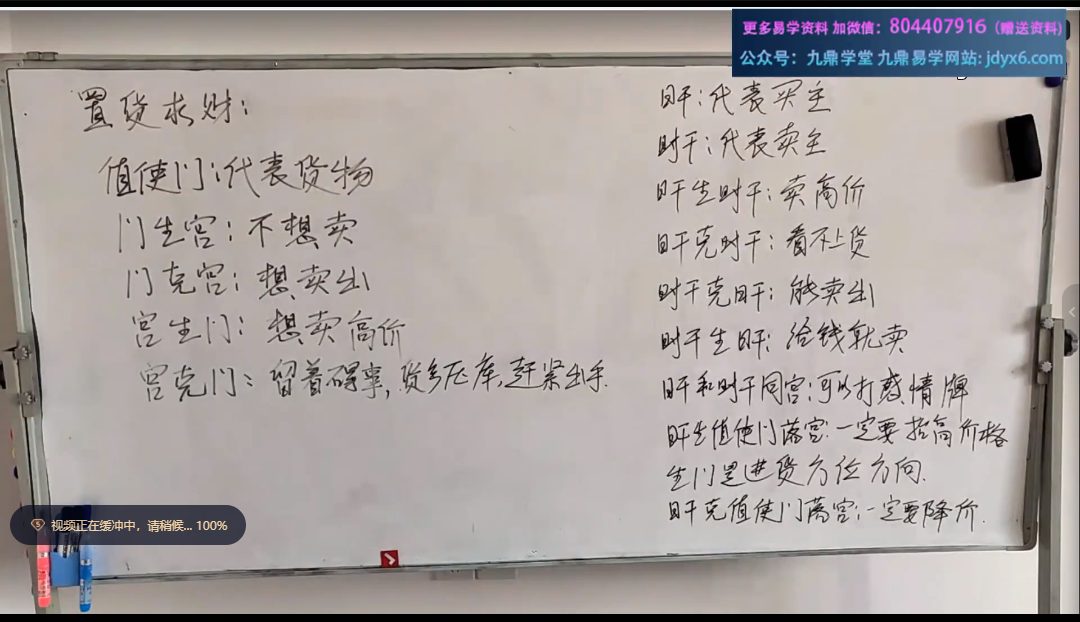 更多易学资料 加微信：804407916（赠送资料）
公众号：九鼎学堂 九鼎易学网站：jdyx6.com
置货求财：
值使门：代表货物
门生宫：不想卖
门克宫：想卖出
宫生门：想卖高价
宫克门：留着碍事，货多压库，赶紧出手.
日干：代表买主
时干：代表卖主
日干生时干：卖高价
日干克时干：看不上货
时干克日干：能卖出
时干生日干：给钱就卖
日干和时干同宫：可以打感情牌
日干生值使门落宫：一定要抬高价格
生门是进货方位方向.
日干克值使门落宫：一定要降价.
视频正在缓冲中，请稍候... 100%